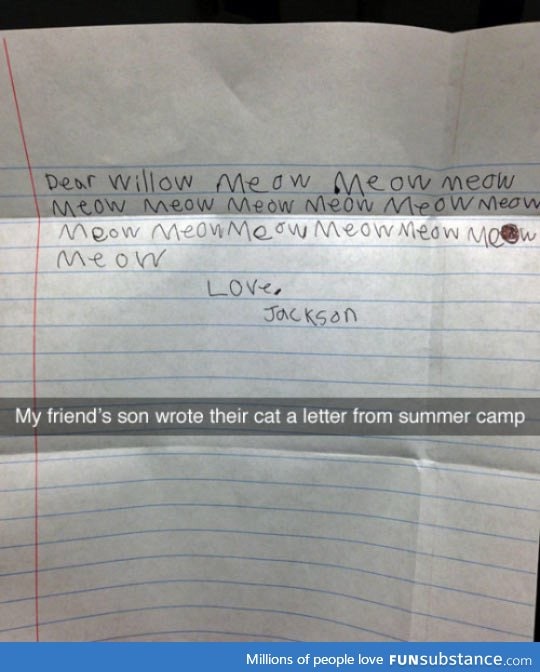 Dear Willow Meow Meow meow
Meow Meow Meow Meow Meow Meow
Meow Meow Meow Meow Meow Meow
Meow
Love,
Jackson
My friend's son wrote their cat a letter from summer camp
Millions of people love FUNsubstance.com